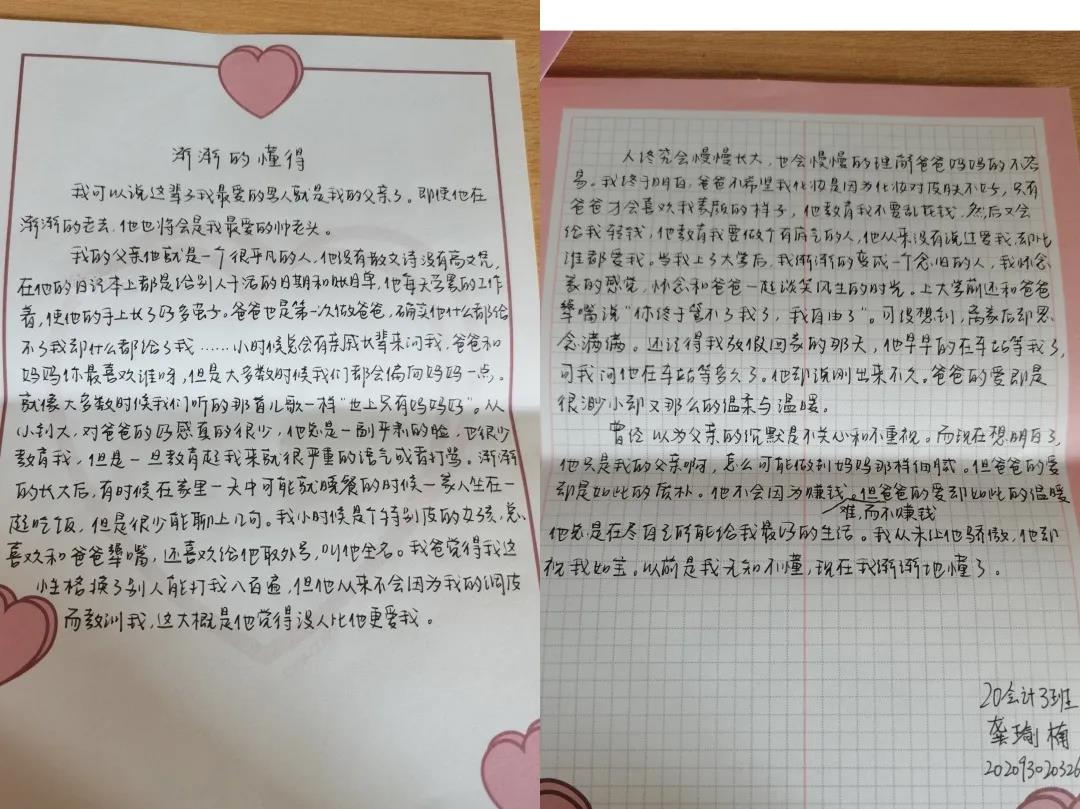 渐渐的懂得
我可以说这辈子我最爱的男人就是我的父亲了。即使他在
渐渐的老去,他也将会是我最爱的帅老头。
我的父亲他就是一个很平凡的人,他没有散文诗没有高文凭,
在他的日记本上都是给别人干活的日期和账单,他每天受累的工作
着,使他的手上长了好多茧子。爸爸也是第一次做爸爸,确实他什么都给
不了我却什么都给了我……小时候总会有亲戚长辈来问我,爸爸和
妈妈你最喜欢谁呀,但是大多数时候我们都会偏向妈妈一点。
就像大多数时候我们听的那首儿歌一样"世上只有妈妈好"。从
小到大,对爸爸的好感真的很少,他总是一副严肃的脸,也很少
教育我,但是一旦教育起我来就很严重的语气或者打骂。渐渐
的长大后,有时候在家里一天中可能就晚餐的时候一家人坐在一
起吃饭,但是很少能聊上几句。我小时候是个特别皮的女孩,总
喜欢和爸爸犟嘴,还喜欢给他取外号,叫他全名。我爸觉得我这
性格换了别人能打我八百遍,但他从来不会因为我的调皮
而教训我,这大概是他觉得没人比他更爱我。
人终究会慢慢长大,也会慢慢的理解爸爸妈妈的不容
易。我终于明白,爸爸不希望我化妆是因为化妆对皮肤不好,只有
爸爸才会喜欢我素颜的样子,他教育我不要乱花钱,然后又会
给我转钱,他教育我要做个有底气的人,他从来没有说过爱我,却比
谁都爱我。当我上了大学后,我渐渐的变成一个念旧的人,我怀念
家的感觉,怀念和爸爸一起谈笑风生的时光。上大学前还和爸爸
犟嘴说"你终于管不了我了,我自由了"。可没想到,离家后却思
念满满。还记得我放假回家的那天,他早早的在车站等我了,
可我问他在车站等多久了。他却说刚出来不久。爸爸的爱即是
很渺小却又那么的温柔与温暖。
曾经以为父亲的沉默是不关心和不重视。而现在想明白了,
他只是我的父亲啊,怎么可能做到妈妈那样细腻。但爸爸的爱
却是如此的质朴。他不会因为赚钱难,而不赚钱。但爸爸的爱却如此的温暖
他总是在尽自己所能给我最好的生活。我从未让他骄傲,他却
视我如宝。以前是我无知不懂,现在我渐渐地懂了。
20会计3班
龚瑜楠
202093020326